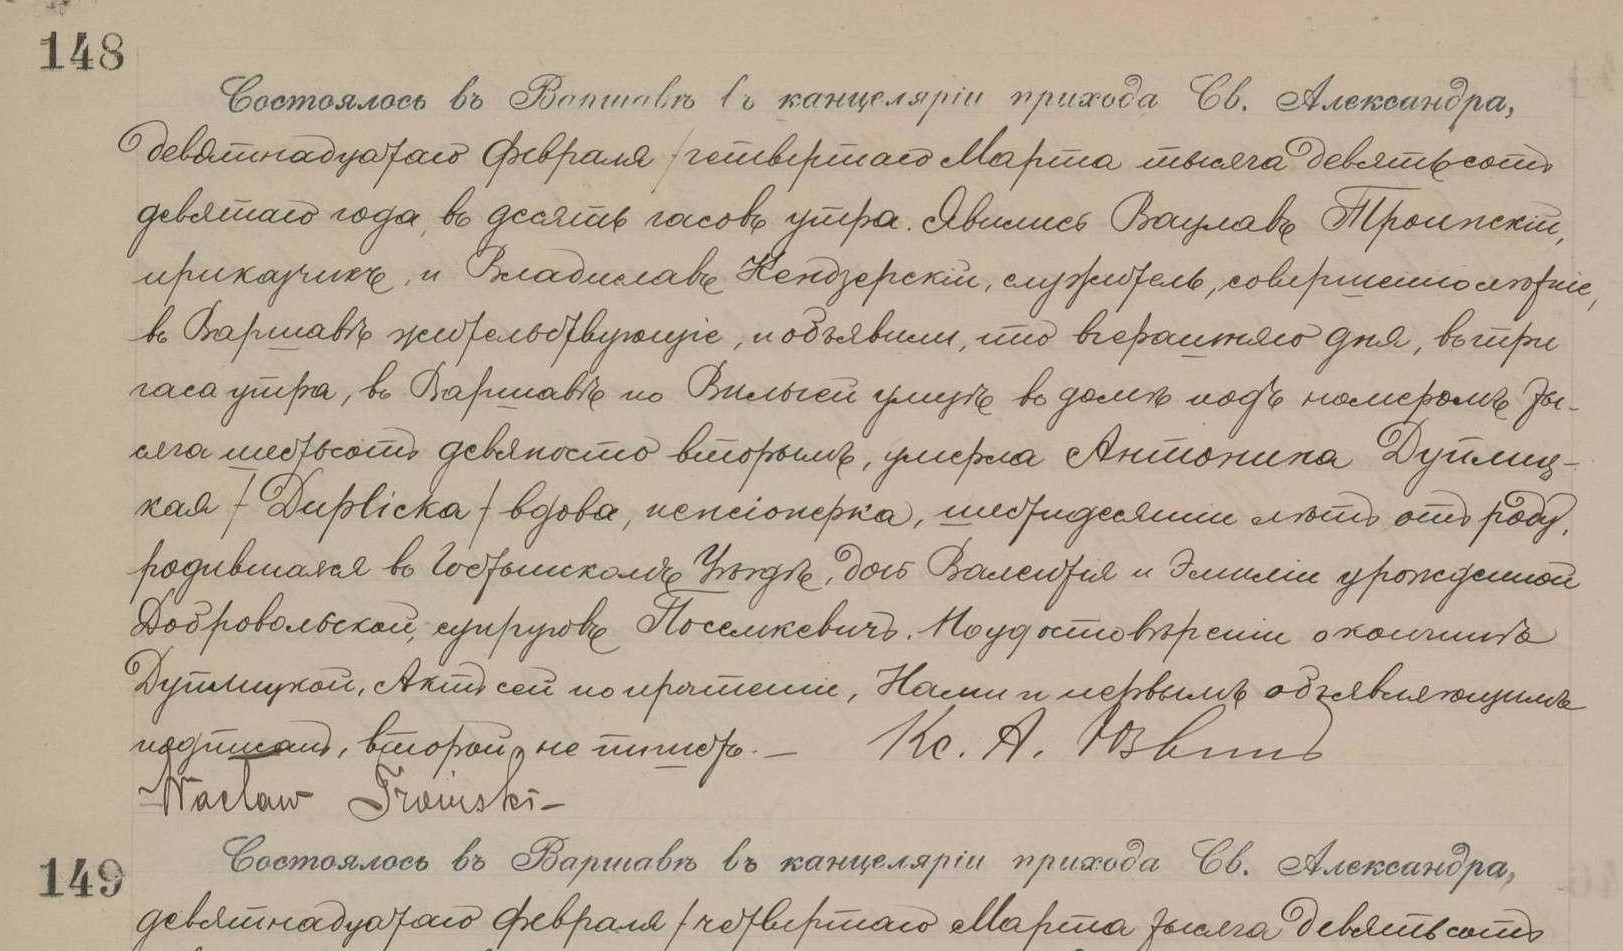 148
Состоялось въ Варшавѣ въ канцеляріи прихода Св. Александра,
девятнадцатаго Февраля /четвертаго Марта тысяча девятьсотъ
девятаго года, въ десять часовъ утра. Явились Вацлавъ Троинскій,
приказчикъ, и Владиславъ Кендзерскій, служитель, совершеннолѣтніе,
въ Варшавѣ жительствующіе, и объявили, что вчерашняго дня, въ три
часа утра, въ Варшавѣ по Вильчей улицѣ въ домѣ подъ номеромъ ты-
сяча шестьсотъ девяносто вторымъ, умерла Антонина Дуплиц-
кая /Duplicka/ вдова, пенсіонерка, шестидесяти лѣтъ отъ роду,
родившаяся въ Гостынскомъ Уѣздѣ, дочь Валентія и Эмиліи урожденной
Добровольской, супруговъ Посемкевичъ. По удостовѣреніи о кончинѣ
Дуплицкой, Актъ сей по прочтеніи, Нами и первымъ объявляющимъ
подписанъ, второй не пишетъ. — Кс. А.
Wacław Troinski
149
Состоялось въ Варшавѣ въ канцеляріи прихода Св. Александра,
девятнадцатаго Февраля /четвертаго Марта тысяча девятьсотъ